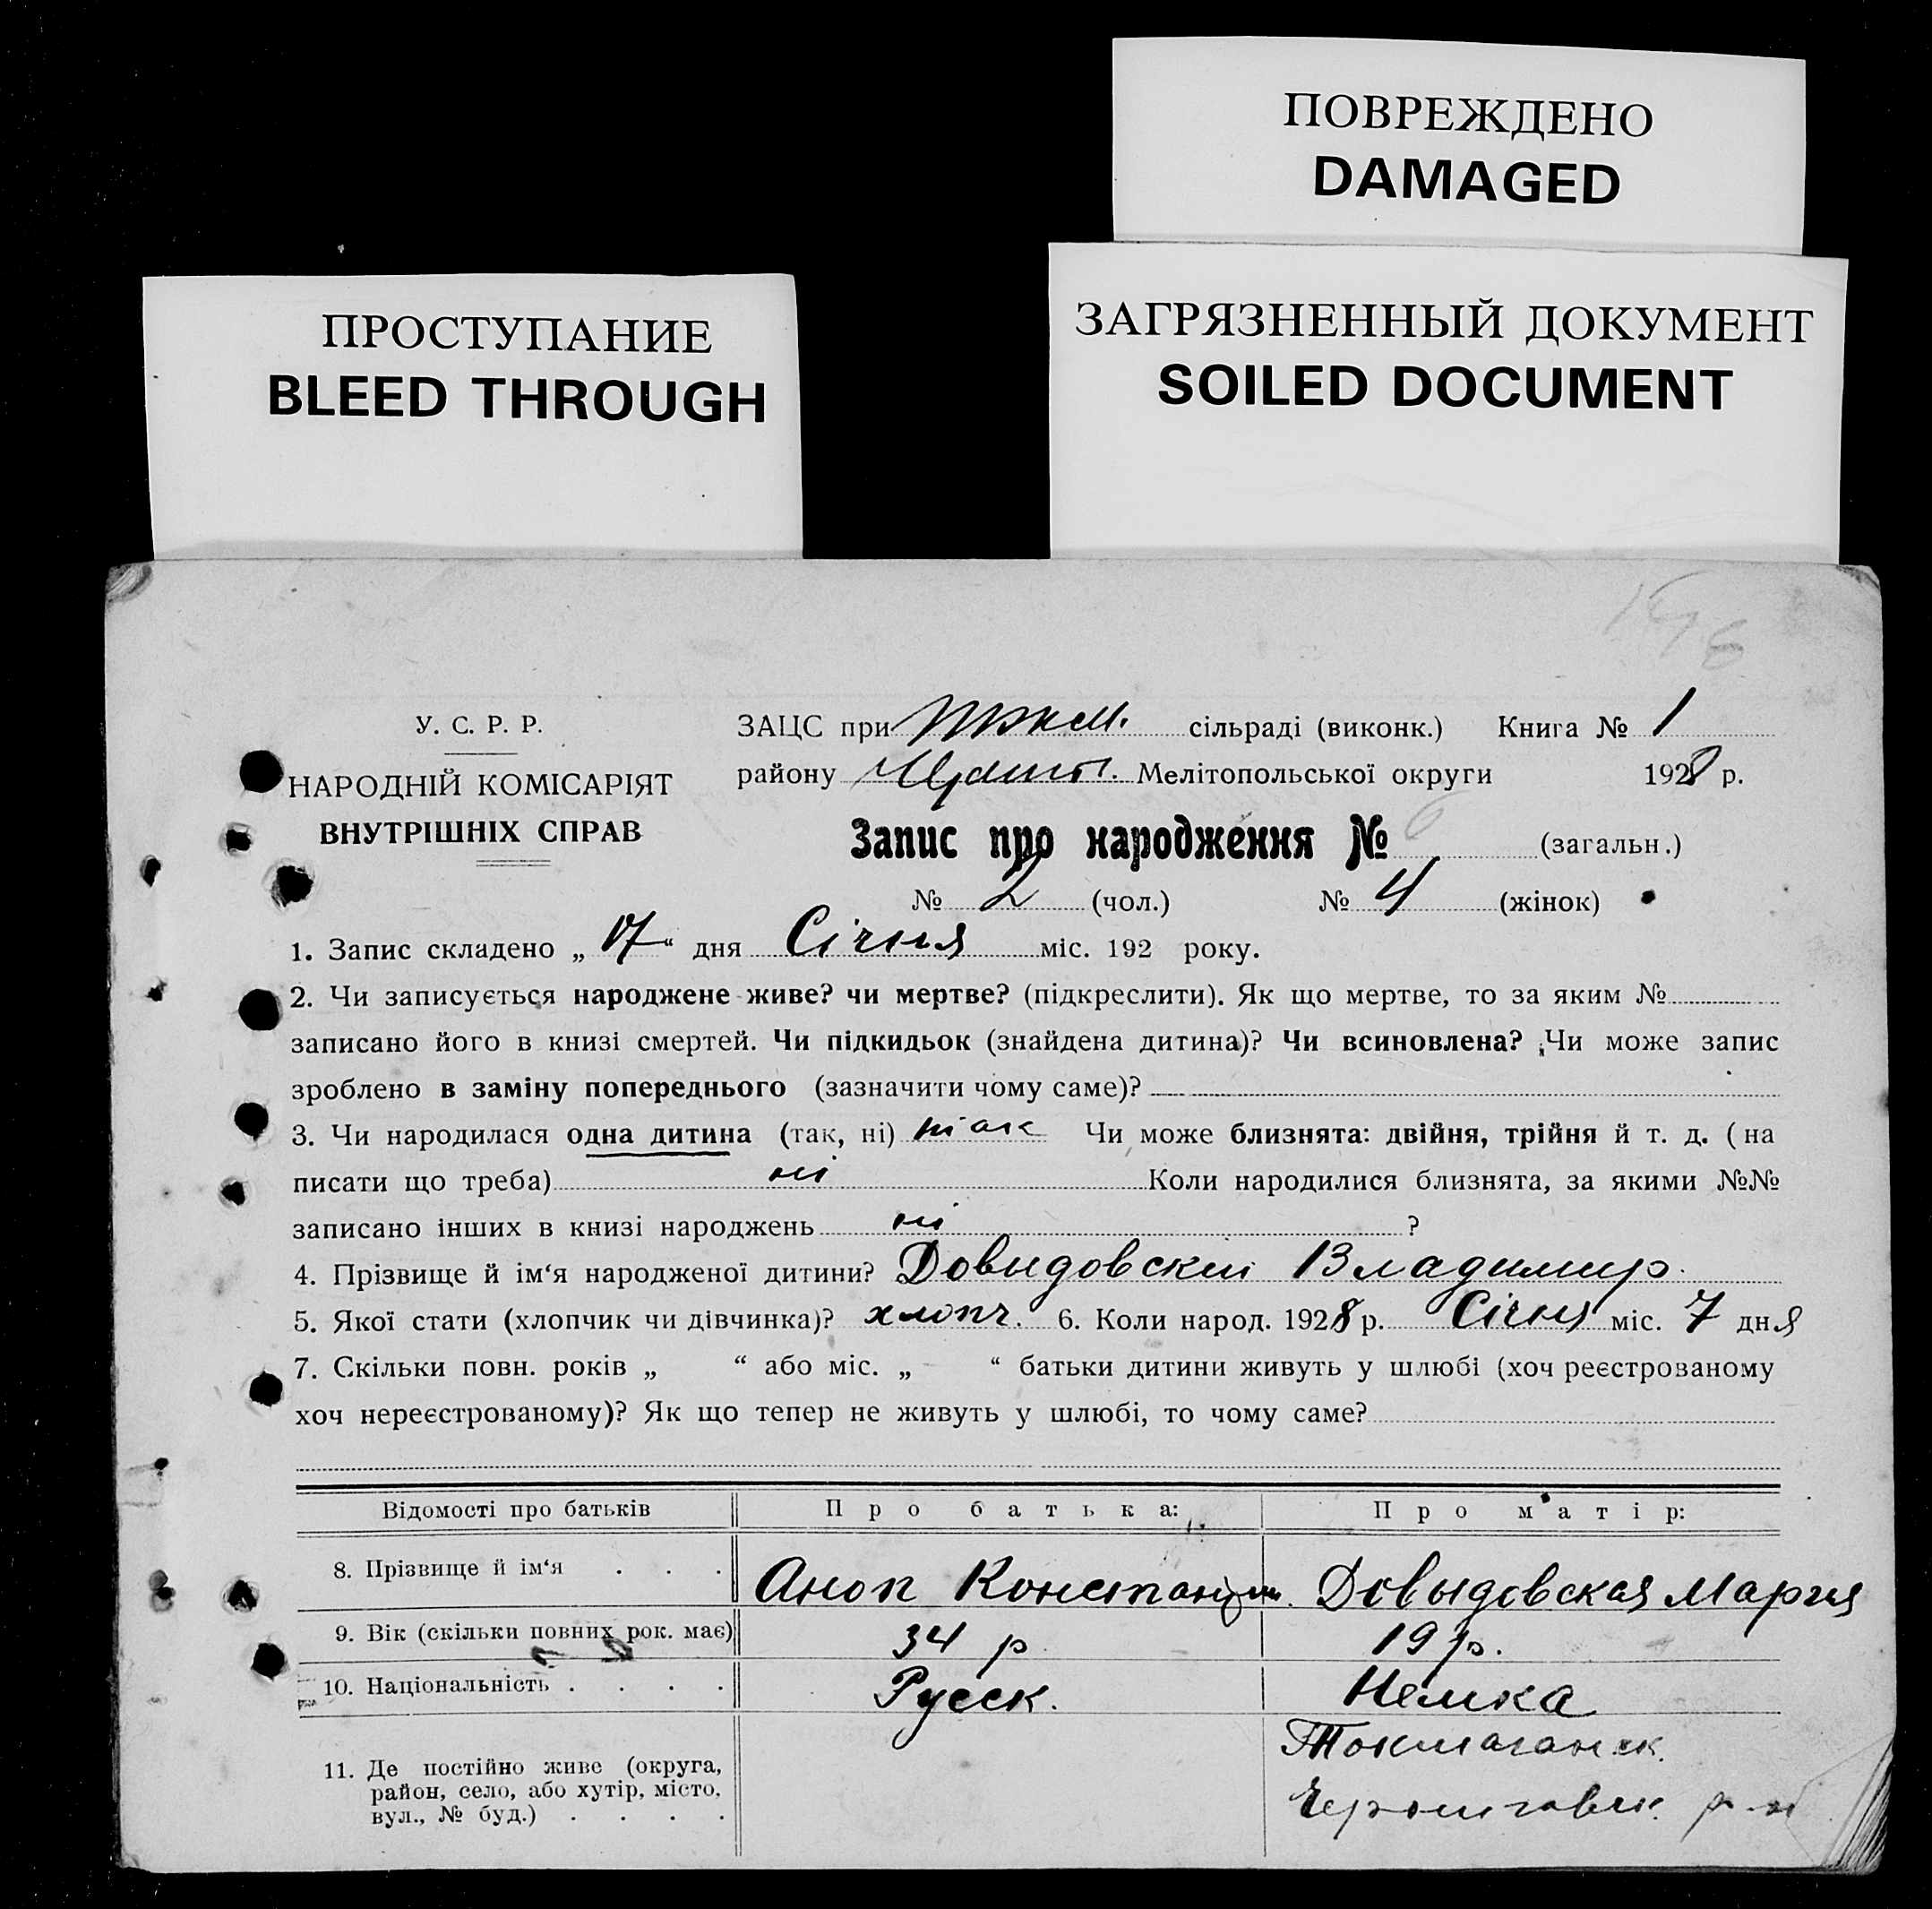 ПОВРЕЖДЕНО
DAMAGED
ПРОСТУПАНИЕ
BLEED THROUGH
ЗАГРЯЗНЕННЫЙ ДОКУМЕНТ
SOILED DOCUMENT
У. С. Р. Р.
НАРОДНІЙ КОМІСАРІЯТ
ВНУТРІШНІХ СПРАВ
ЗАЦС при сільраді (виконк.) Книга № 1
району Мелітопольської округи 1928 р.
Запис про народження № 6 (загальн.)
№ 2 (чол.) № 4 (жінок)
1. Запис складено „ 17 “ дня Січня міс. 192 року.
2. Чи записується народжене живе? чи мертве? (підкреслити). Як що мертве, то за яким №
записано його в книзі смертей. Чи підкидьок (знайдена дитина)? Чи всиновлена? Чи може запис
зроблено в заміну попереднього (зазначити чому саме)?
3. Чи народилася одна дитина (так, ні) так Чи може близнята: двійня, трійня й т. д. (на
писати що треба) ні Коли народилися близнята, за якими №№
записано інших в книзі народжень ні ?
4. Прізвище й ім‘я народженої дитини? Довыдовский Владимир.
5. Якої стати (хлопчик чи дівчинка)? хлопч. 6. Коли народ. 1928 р. Січня міс. 7 дня
7. Скільки повн. років „ “ або міс. „ “ батьки дитини живуть у шлюбі (хоч реєстрованому
хоч нереєстрованому)? Як що тепер не живуть у шлюбі, то чому саме?
Відомості про батьків Про батька: Про матір:
8. Прізвище й ім‘я . . . Аноп Константин. Довыдовская Мария
9. Вік (скільки повних рок. має) 34 р 19 р.
10. Національність . . . . Русск. Немка
11. Де постійно живе (округа,
район, село, або хутір, місто,
вул., № буд.) . . . .
Черниговск. р-н